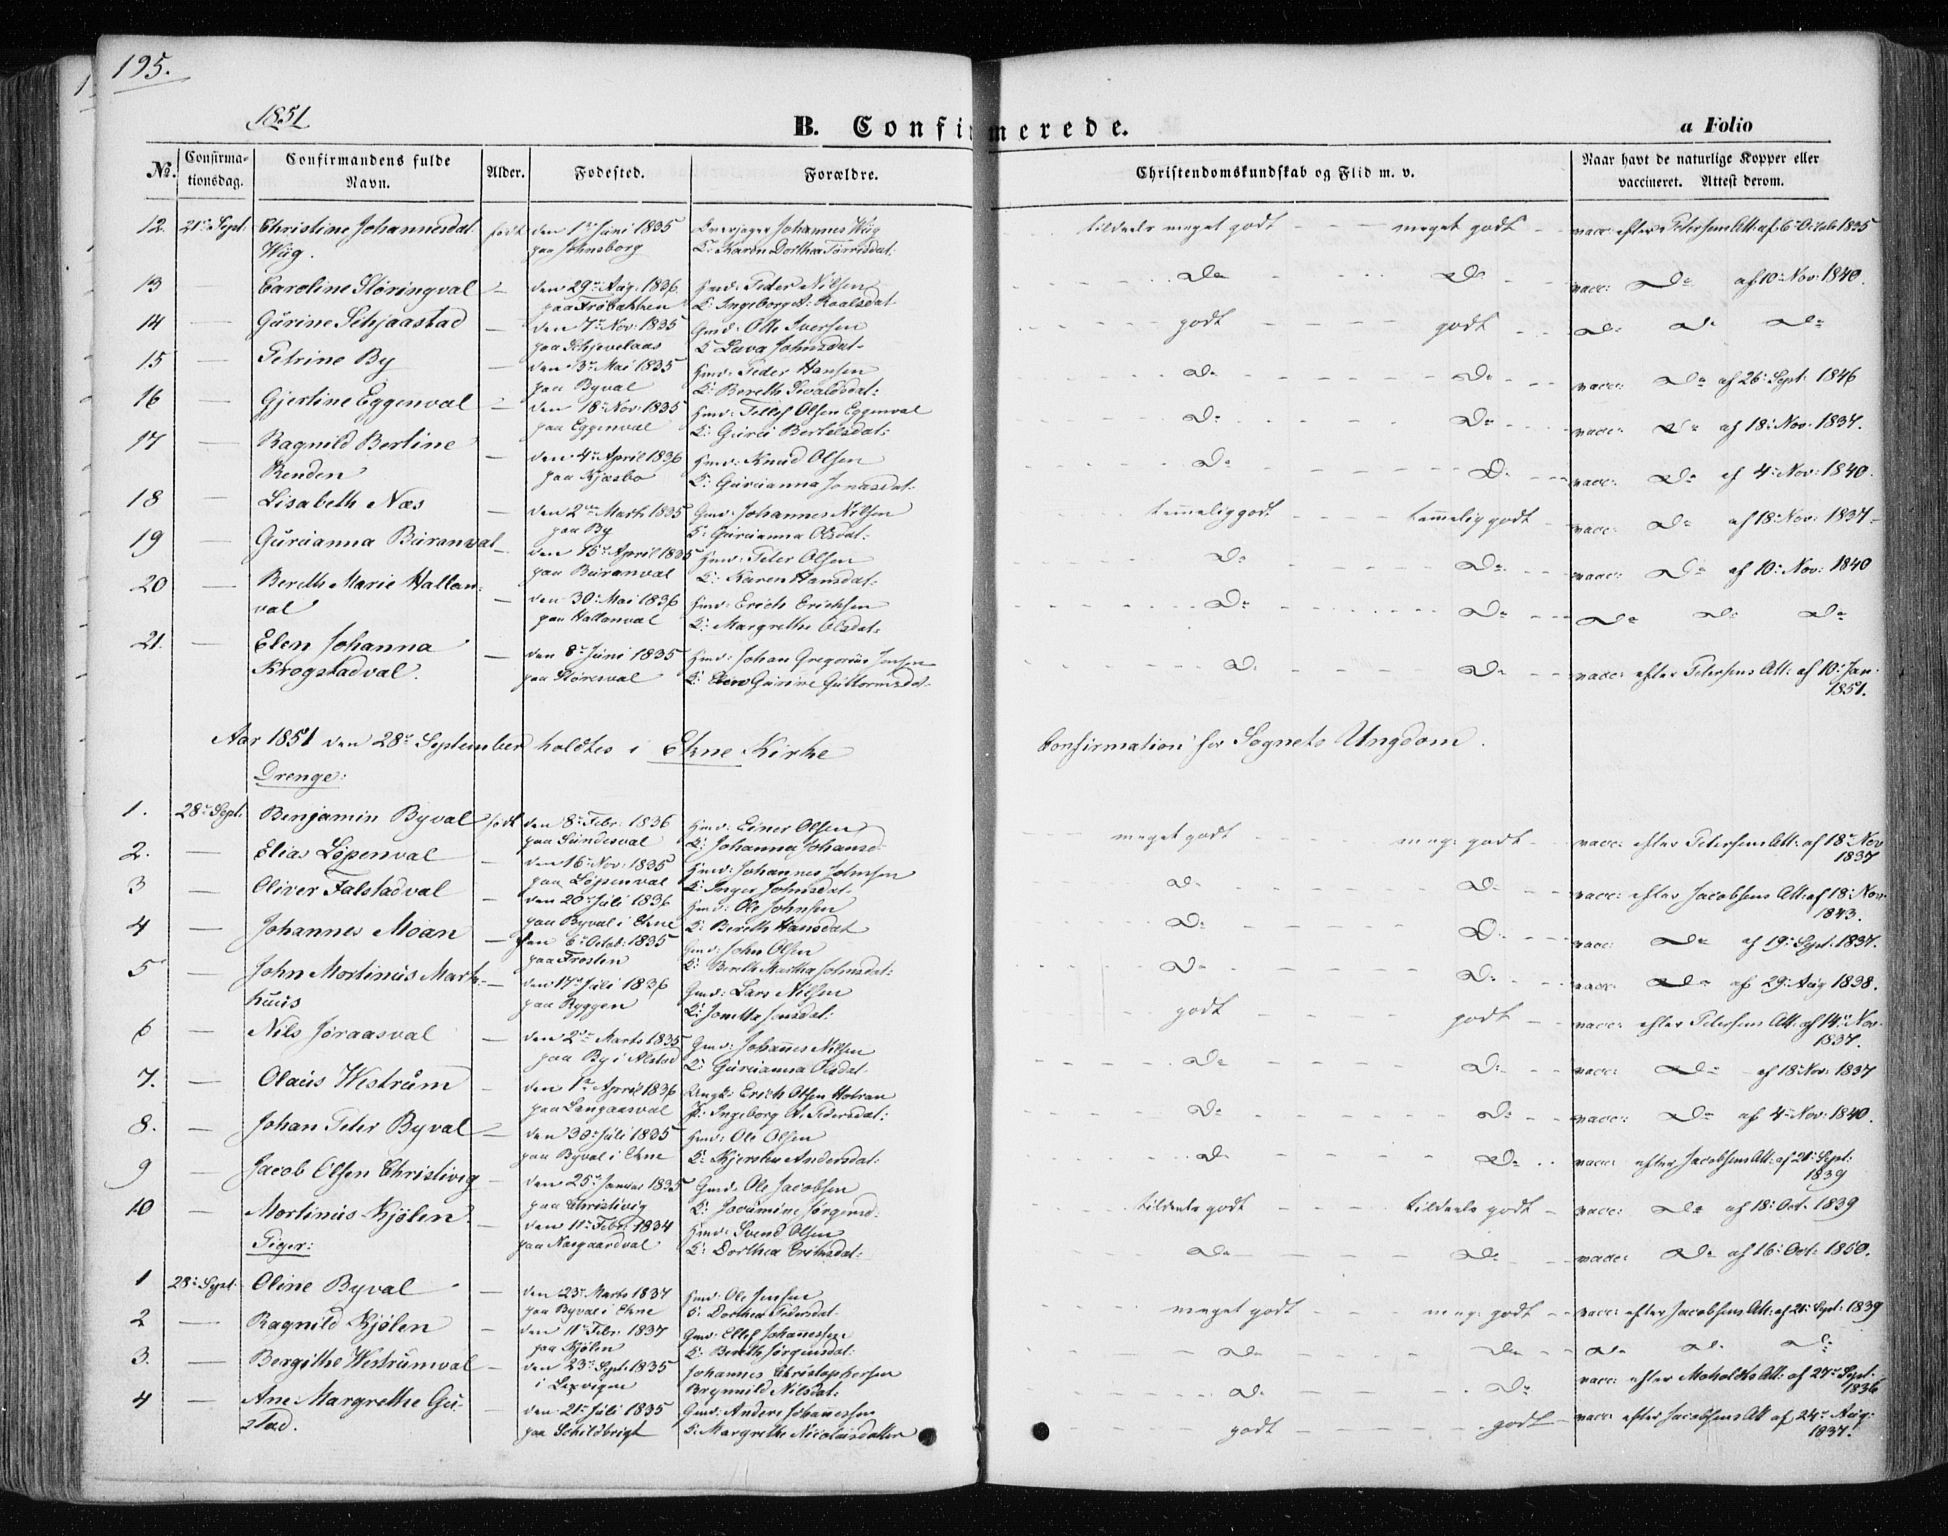 195.
1851
B. Confirmerede.
a Folio
No. Confirmationsdag. Confirmandens fulde Navn. Alder. Fødested. Forældre. Christendomskundskab og Flid m. v. Naar havt de naturlige Kopper eller vaccineret. Attest derom.
12. 21de Sept. Christine Johannesdat. født den 1ste Juni 1835 Johannes Wüg tildeels meget godt meget godt vacc: efter Petersens Att: af 6te Octob 1835
Wüg. paa Johnsborg K: Karen Dorthea Torrisdat:
13 Caroline Støringval — den 29de Aug. 1836 Hmd: Peder Nilsen Do Do vacc: Do af 10: Nov: 1840.
paa Frøbakken K: Ingeborg A: Roalsdat
14 — Gürine Schjaastad — den 7de Nov: 1835 Gmd: Ole Iversen godt godt Do Do Do
paa Schjevelaas K: Sava Johnsdat-
15 — Petrine By — den 13de Mai 1835 Hmd: Peder Hansen Do Do vacc: Do af 26: Sept: 1846
paa Byval K: Bereth Sivaldsdat:
16 — Gjertine Eggenval — den 18de Nov: 1835 Hmd: Tellef Olsen Eggenval Do Do vacc: Do af 18: Nov: 1837.
paa Eggenval K: Gürü Bertelsdat:
17 — Ragnild Bertine — den 4de April 1836 Hmd: Knud Olsen Do Do vacc: Do af 4: Nov: 1840.
Renden paa Kjæsbo K: Gürüanna Jonasdat:
18 — Lisabeth Næs — den 2den Marts 1835 Gmd: Johannes Nilsen temmelig godt temmelig godt vacc: Do af 18: Nov: 1837-
paa By K: Gürüanna Olsdat:
19 — Gürüanna Büranval — den 15de April 1835 Hmd: Peter Olsen Do Do vacc: Do af 10: Nov: 1840
paa Büranval K: Karen Hansdat:
20 — Bereth Marie Hallan- — den 30: Mai 1836 Hmd: Erich Erichsen Do Do Do Do Do
val paa Hallanval K: Margrethe Olsdat:
21. — Elen Johanna — den 8de Juni 1835 Hmd: Johan Gregorius Jensen Do Do vacc: efter Petersens Att: af 10: Jan:
Krogstadval. paa Støresval K: Elen Gürine Güttormsdat- 1851.
Aar 1851 den 28de September holdtes i Ekne Kirke Confirmation for Sognets Ungdom.
Drenge:
1. 28de Sept. Benjamin Byval født den 8de Febr. 1836 Hmd: Einer Olsen meget godt meg: godt vacc: efter Petersens Att: af 18de Nov
paa Sundesval K: Johanna Johansd- 1837
2. — Elias Løpenval — den 16: Nov: 1835 Hmd: Johannes Johnsen Do Do vacc: efter Jacobsens Att: af 18: Nov:
paa Løpenval K: Inger Johnsdat. 1843.
3 — Oliver Falstadval — den 20de Juli 1836 Hmd: Ole Johnsen Do Do vacc: Do af 19: Sept: 1837.
paa Byval i Ekne K: Bereth Hansdat
4 — Johannes Moan — den 6te Octob: 1835 Gmd: John Olsen Do Do vacc: Do af 29: Aug 1838.
paa Frosten K: Bereth Martha Johnsdat:
5 — John Mortinüs Mark- — den 17de Juli 1836 Gmd: Lars Nilsen godt godt vacc: efter Petersens Att. af 14de Nov.
hüüs paa Ryggen K: Jonetta Jonsdat: 1837.
6 — Nils Joraasval — den 2den Marts 1835 Gmd: Johannes Nilsen Do Do vacc: Do af 18: Nov: 1837
paa By i Alstad K: Gürüanna Olsdat-
7. — Olaüs Westrüm — den 1ste April 1836 Ungk: Erich Olsen Holran Do Do vacc: Do af 4: Nov: 1840.
paa Langaasval P: Ingeborg A. Pedersdat:
8. — Johan Peter Byval — den 30: Juli 1835 Hmd: Ole Olsen Do Do vacc: efter Jacobsens Att: af 21: Sept:
paa Byval i Ekne K: Kjersten Andersdat: 1839
9 — Jacob Olsen Christivig — den 25de Januar 1835 Gmd: Ole Jacobsen tildeels godt tildeels godt vacc: Do af 18: Oct. 1839
paa Christivig K: Jørgensd:
10 — Mortinüs Kjølen — den 11te Febr: 1834 Hmd: Svend Olsen Do Do vacc: Do af 16: Oct: 1850.
paa Naisgaardval K: Dorthea Erichsdat:
Piger:
1 28de Sept. Oline Byval — den 23de Marts 1837 Hmd: Ole Jensen meget godt meg: godt vacc: efter Jacobsens Att: af 21: Sept: 1839
paa Byval i Ekne K: Dorthea Pedersdat.
2 — Ragnild Kjølen — den 11te Febr. 1837 Gmd: Ellef Johannessen Do Do Do Do Do
paa Kjølen K: Bereth Jørgensdat:
3. — Bergithe Westrümval — den 23de Sept. 1835 Johannes Christophersen Do Do vacc: efter Moholdts Att: af 27de Sept.
i Lexvigen Brynnild Nilsdat: 1836
4 — Ane Margrethe Gü- — den 21de Juli 1835 Gmd: Anders Johannessen godt godt vacc: efter Jacobsens Att af 24de Aug:
stad. paa Schildbrigt K: Margrethe Nicolaisdatter 1837.